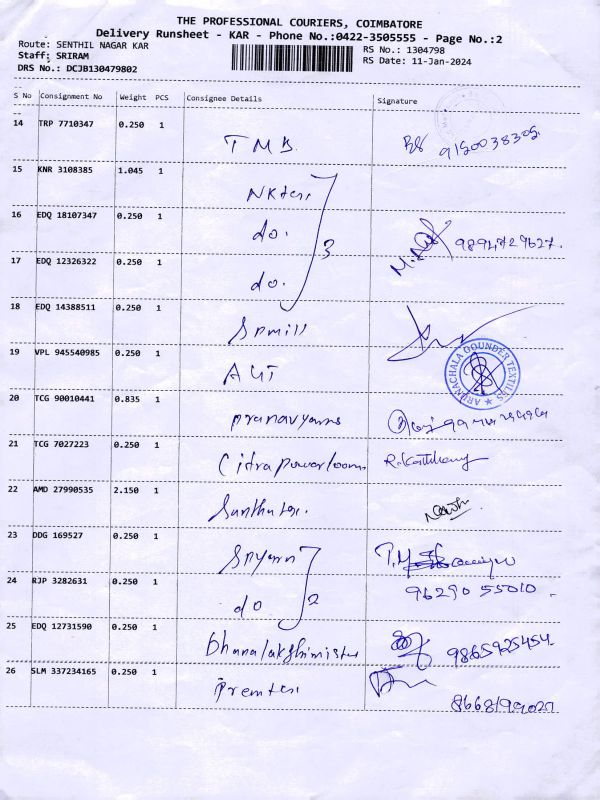 THE PROFESSIONAL COURIERS, COIMBATORE
Delivery Runsheet - KAR - Phone No.:0422-3505555 - Page No.:2
Route: SENTHIL NAGAR KAR RS No.: 1304798
Staff: SRIRAM RS Date: 11-Jan-2024
DRS No.: DCJB130479802
S No Consignment No Weight PCS Consignee Details Signature
14 TRP 7710347 0.250 1 TMB 9150038305
15 KNR 3108385 1.045 1 NKtex
16 EDQ 18107347 0.250 1 do. 3 9894729627.
17 EDQ 12326322 0.250 1 do.
18 EDQ 14388511 0.250 1 Spmill
19 VPL 945540985 0.250 1 AGT ARUNACHALA GOUNDER TEXTILES
20 TCG 90010441 0.835 1 pranavyarns
21 TCG 7027223 0.250 1 Citrapowerloom
22 AMD 27990535 2.150 1
23 DDG 169527 0.250 1 Spyarn
24 RJP 3282631 0.250 1 do 2 96290 55010.
25 EDQ 12731590 0.250 1 9865925454
26 SLM 337234165 0.250 1 Premtex